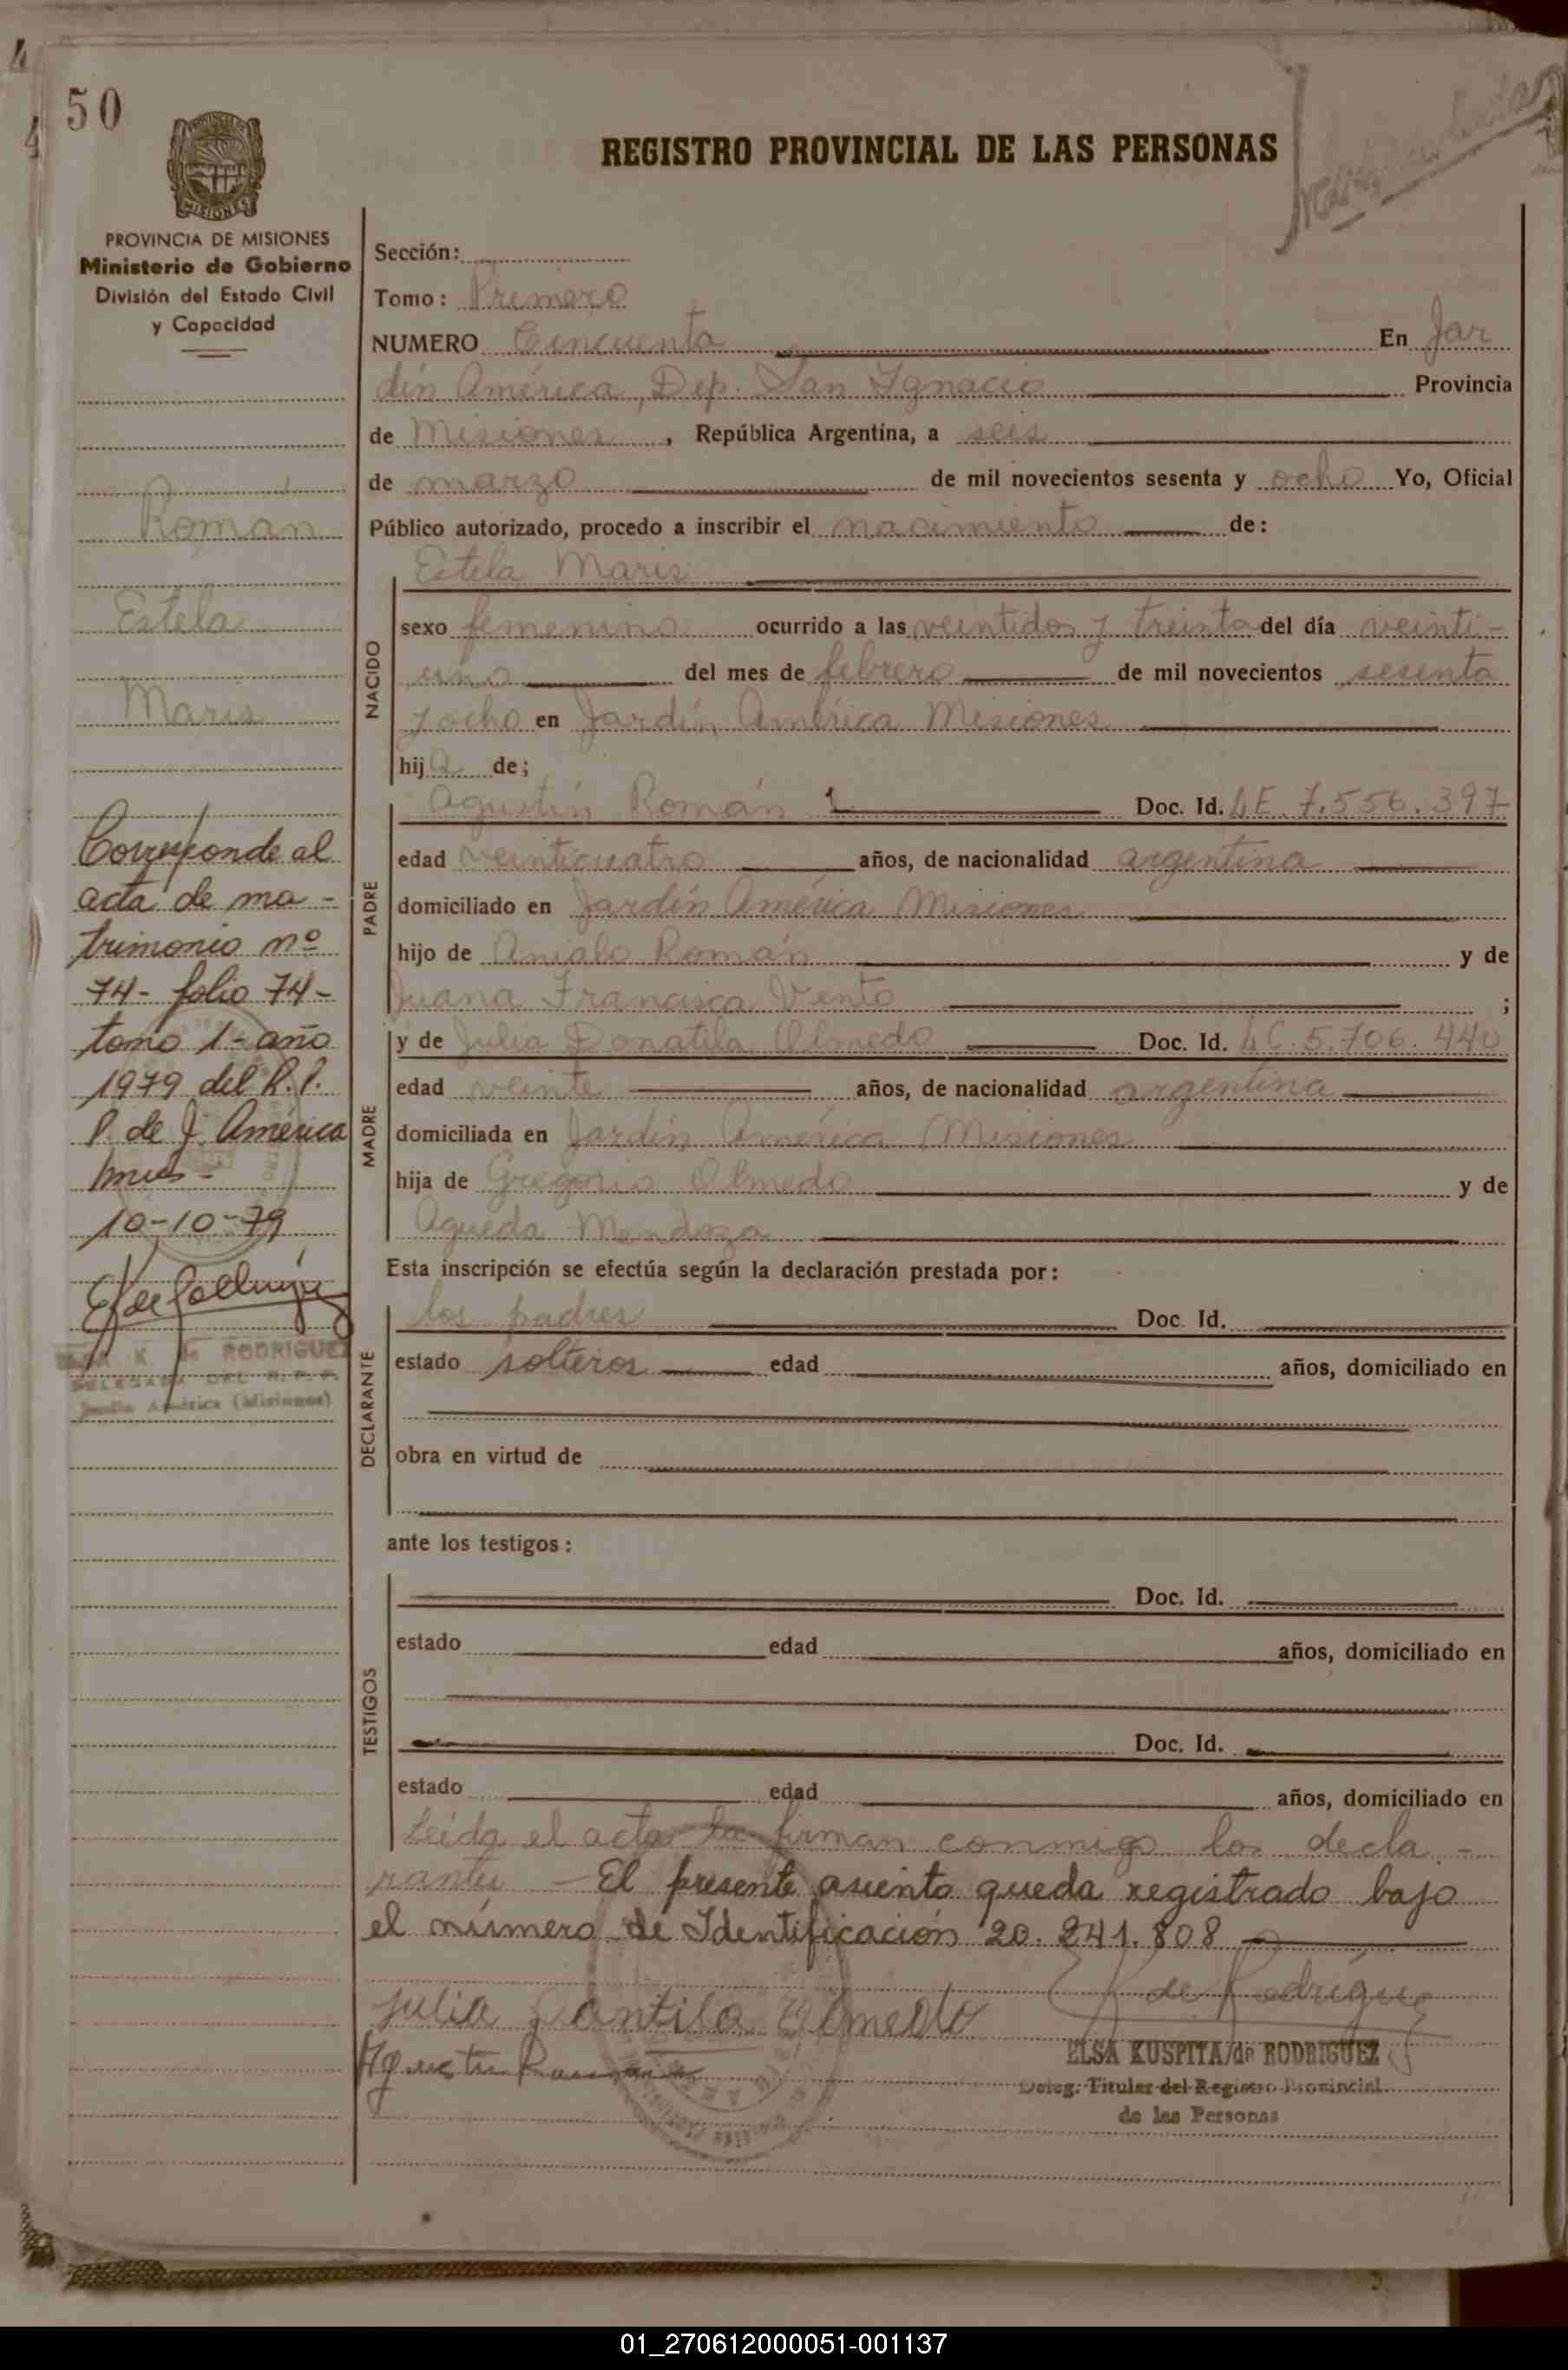 50
REGISTRO PROVINCIAL DE LAS PERSONAS
MISIONES
PROVINCIA DE MISIONES
Ministerio de Gobierno
División del Estado Civil
y Capacidad
Román
Estela
Maris
Corresponde al
acta de ma-
trimonio nº
74- folio 74-
tomo 1- año
1979 del R.P.
P. de J. América
Mnes-
10-10-79
K. de RODRIGUEZ
DELEGADA DEL R.P.P.
Jardín América (Misiones)
Sección:
Tomo: Primero
NUMERO Cincuenta En Jar
dín América, Dep. San Ignacio Provincia
de Misiones, República Argentina, a seis
de marzo de mil novecientos sesenta y ocho Yo, Oficial
Público autorizado, procedo a inscribir el nacimiento de:
Estela Maris
NACIDO
sexo femenino ocurrido a las veintidos y treinta del día veinti-
uno del mes de febrero de mil novecientos sesenta
y ocho en Jardín América Misiones
hija de;
PADRE
Agustín Román Doc. Id. LE. 7.556.397
edad veinticuatro años, de nacionalidad argentina
domiciliado en Jardín América Misiones
hijo de Román y de
Juana Francisca Vento ;
MADRE
y de Julia Donatila Olmedo Doc. Id. LC. 5.706.440
edad veinte años, de nacionalidad argentina
domiciliada en Jardín América Misiones
hija de Gregorio Olmedo y de
Agueda Mendoza
Esta inscripción se efectúa según la declaración prestada por:
DECLARANTE
los padres Doc. Id.
estado solteros edad años, domiciliado en
obra en virtud de
ante los testigos:
TESTIGOS
Doc. Id.
estado edad años, domiciliado en
Doc. Id.
estado edad años, domiciliado en
Leída el acta la firman conmigo los decla-
rantes - El presente asiento queda registrado bajo
el número de Identificación 20.241.808
de Rodríguez
Julia Olmedo
ELSA KUSPITA de RODRIGUEZ
Deleg. Titular del Registro Provincial
de las Personas
01_270612000051-001137